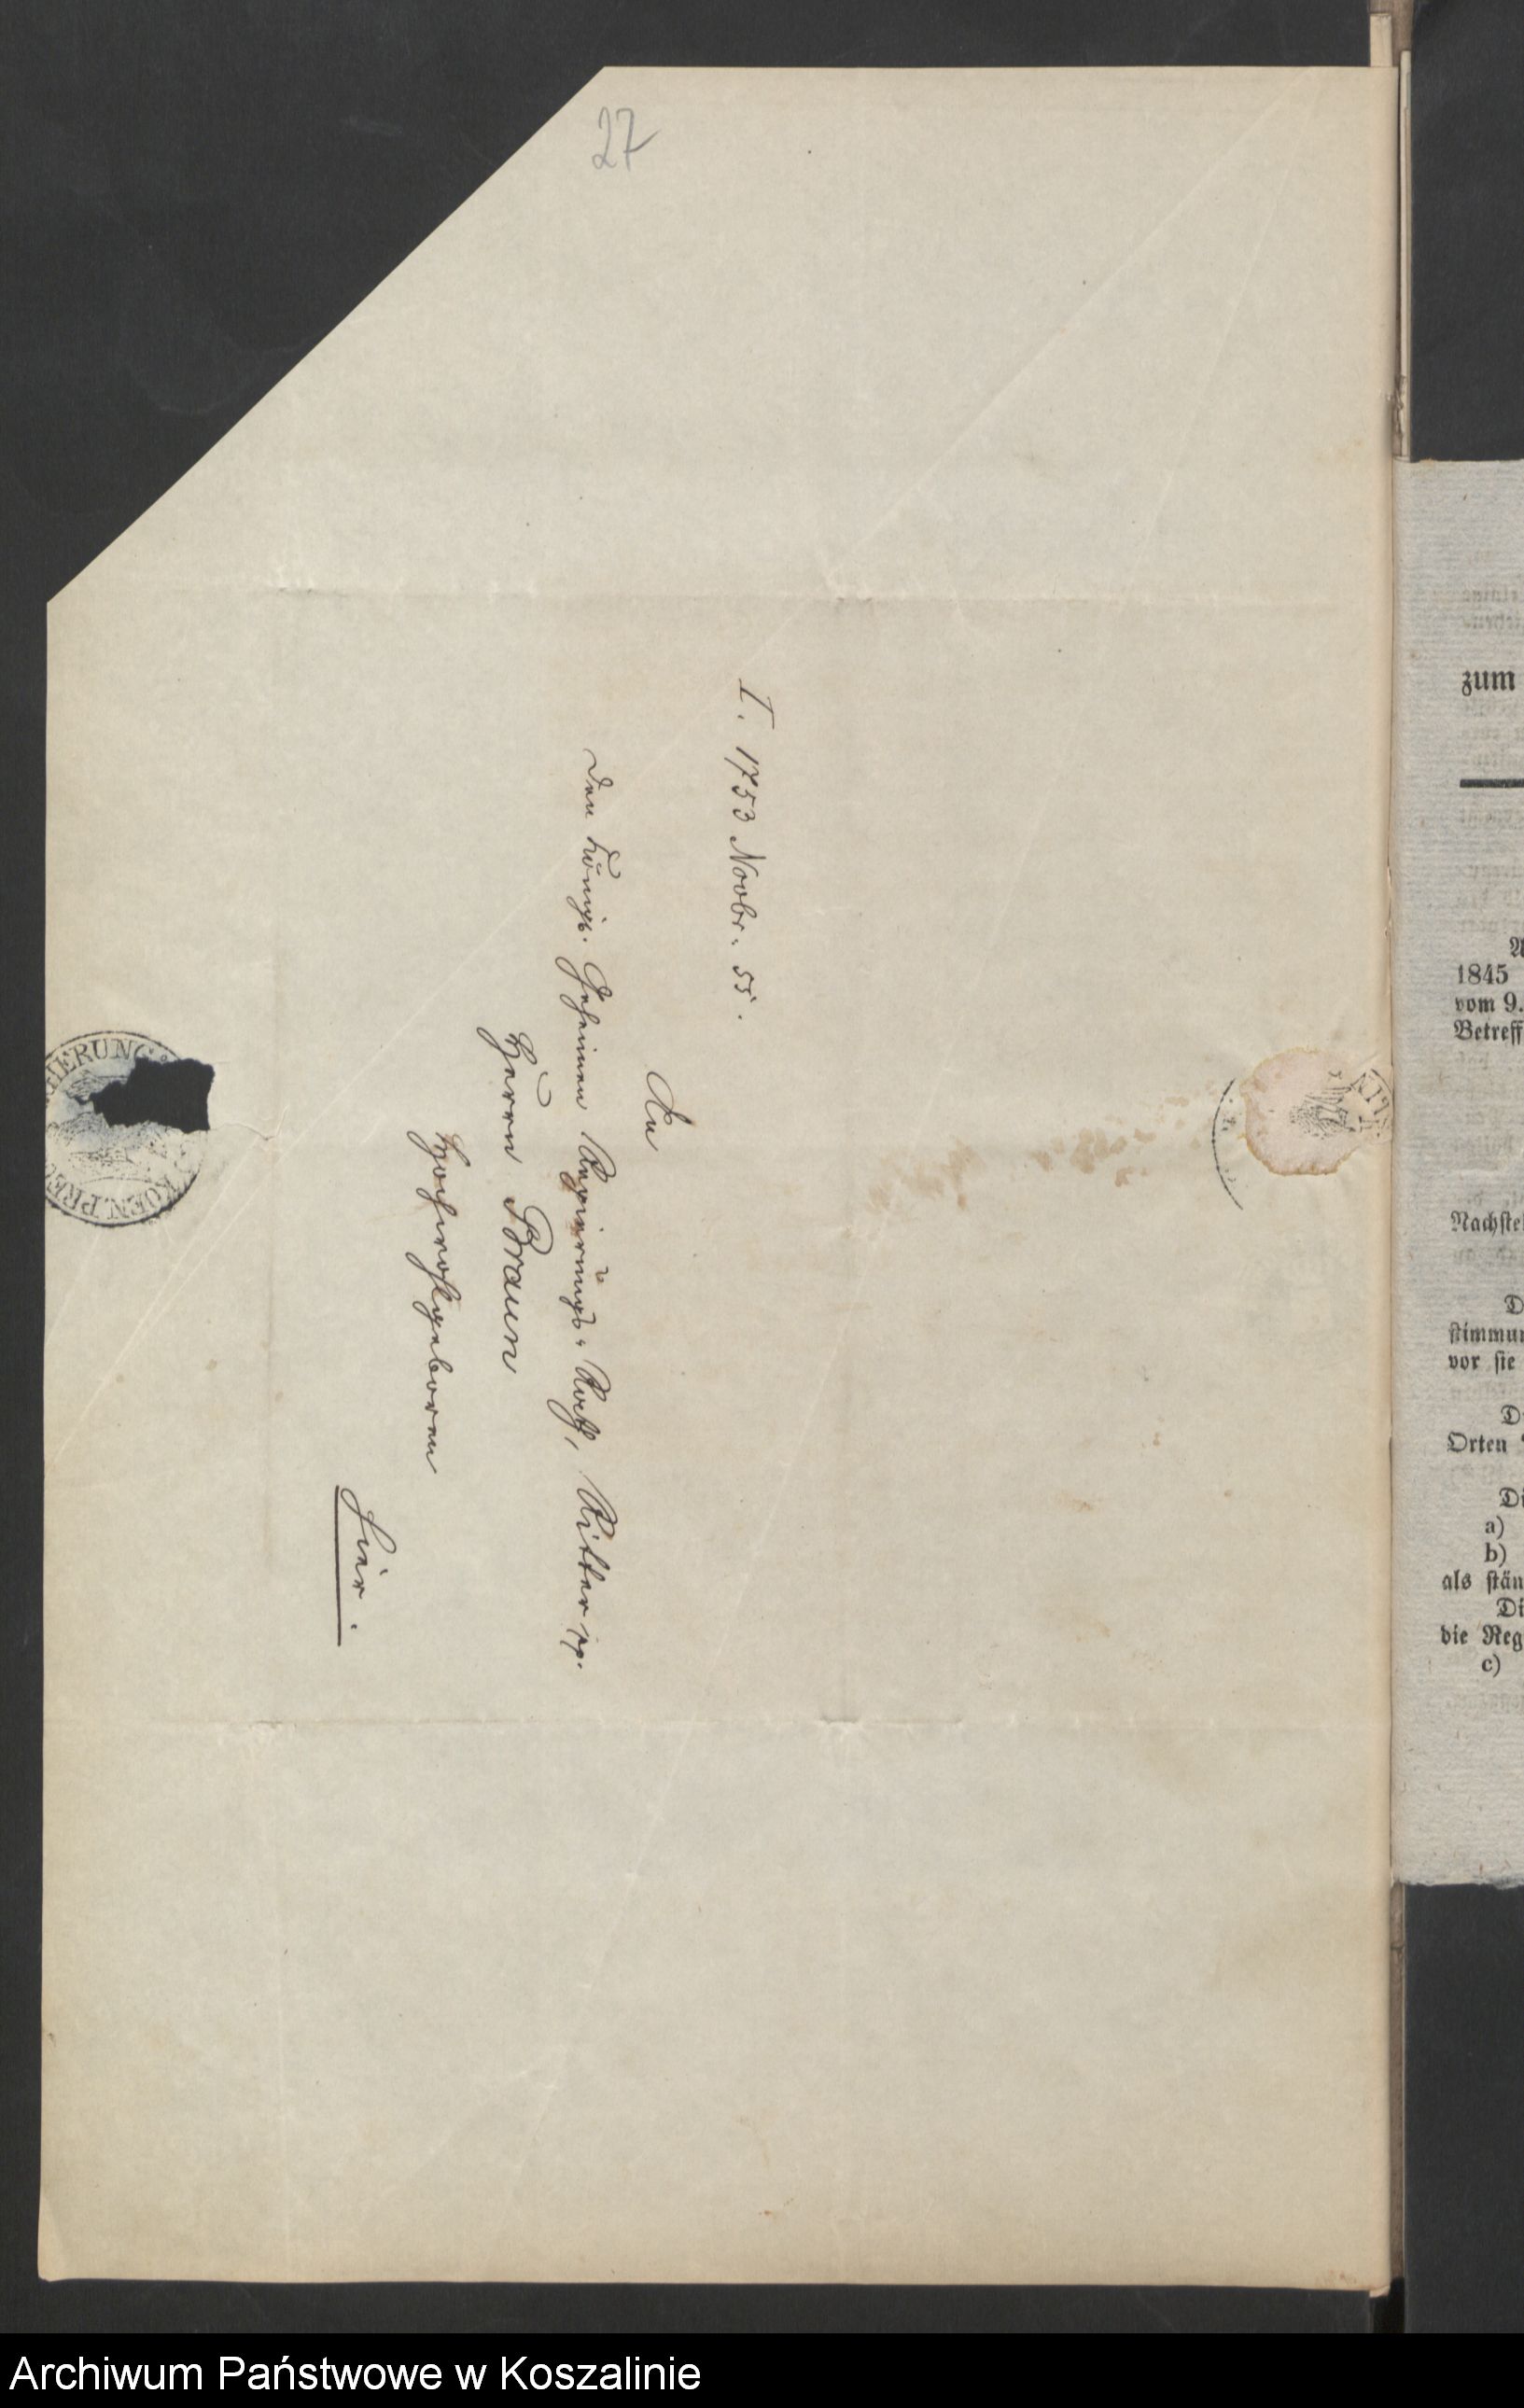 27
I. 1753 Novbr. 55.
An
den Königl. Geheimen Regierungs-Rath, Ritter pp.
Herrn Braun
Hochwohlgeboren
hier.
KOEN. PREU
IERUNG
zum
1845
vom 9.
Betreff
Nachste
stimmun
vor sie
Orten
a)
b)
als stän
Di
die Reg
c)
Archiwum Państwowe w Koszalinie